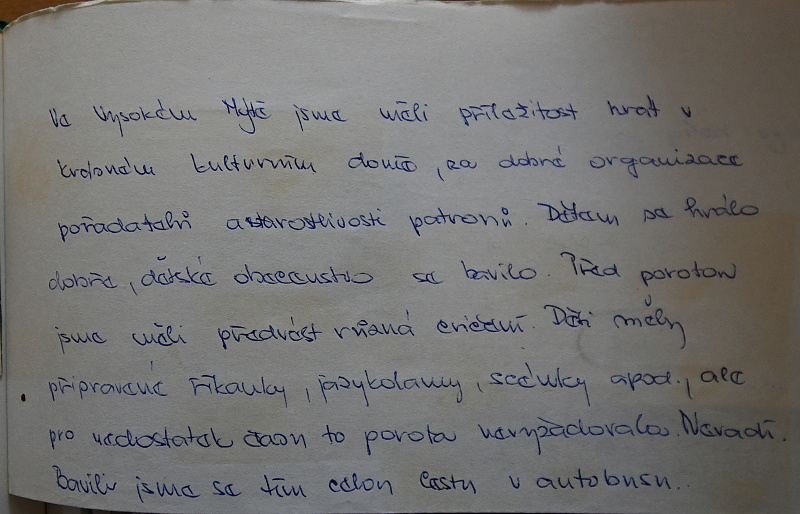 Ve Vysokém Mýtě jsme měli příležitost hrát v
krásném kulturním domě, za dobré organizace
pořadatelů a starostlivosti patronů. Dětem se hrálo
dobře, dětské obecenstvo se bavilo. Před porotou
jsme měli předvést různá cvičení. Děti měly
připravené říkanky, jazykolamy, scénky apod., ale
pro nedostatek času to porota nevyžadovala. Nevadí.
Bavili jsme se tím celou cestu v autobusu..